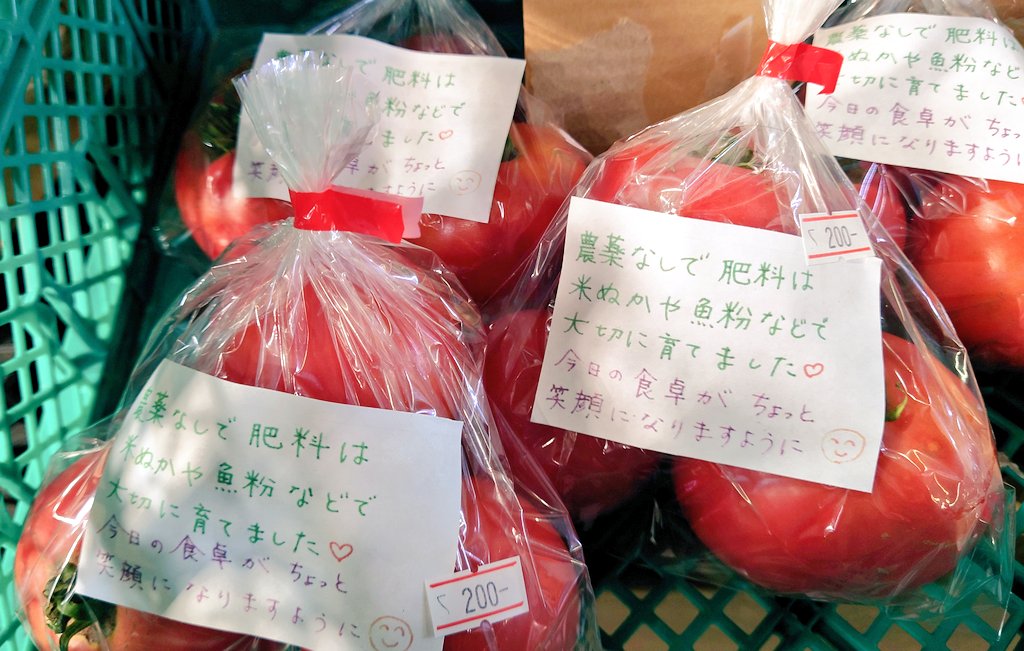 農薬なしで 肥料は
粉などで
ました♡
笑顔 卓が ちょっと
すように
農薬なしで 肥料は
ぬかや魚粉など
大切に育てました
今日の食卓が ちょ
笑顔になりますように
農薬なしで 肥料は
米ぬかや魚粉などで
大切に育てました♡
今日の食卓が ちょっと
笑顔になりますように
200-
農薬なしで 肥料は
米ぬかや魚粉などで
大切に育てました♡
今日の食卓が ちょっと
笑顔になりますように
200-